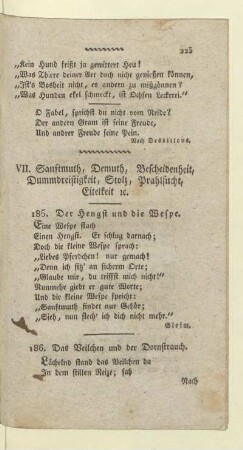 225
„Kein Hund frißt ja gewittert Heu!
„Was Thiere deiner Art doch nicht genießen können,
„Ist's Bosheit nicht, es andern zu mißgönnen?
„Was Hunden ekel schmeckt, ist Ochsen Leckerei.“
O Fabel, sprichst du nicht vom Neide?
Der andern Gram ist seine Freude,
Und andrer Freude seine Pein.
Nach Desbillons.
VII. Sanftmuth, Demuth, Bescheidenheit,
Dummdreistigkeit, Stolz, Prahlsucht,
Eitelkeit ꝛc.
185. Der Hengst und die Wespe.
Eine Wespe stach
Einen Hengst. Er schlug darnach;
Doch die kleine Wespe sprach:
„Liebes Pferdchen! nur gemach!
„Denn ich sitz' an sicherm Orte;
„Glaube mir, du triffst mich nicht!“
Nunmehr giebt er gute Worte;
Und die kleine Wespe spricht:
„Sanftmuth findet nur Gehör;
„Sieh, nun stech' ich dich nicht mehr.“
Gleim.
186. Das Veilchen und der Dornstrauch.
Lächelnd stand das Veilchen da
In dem stillen Reize; sah
Nach